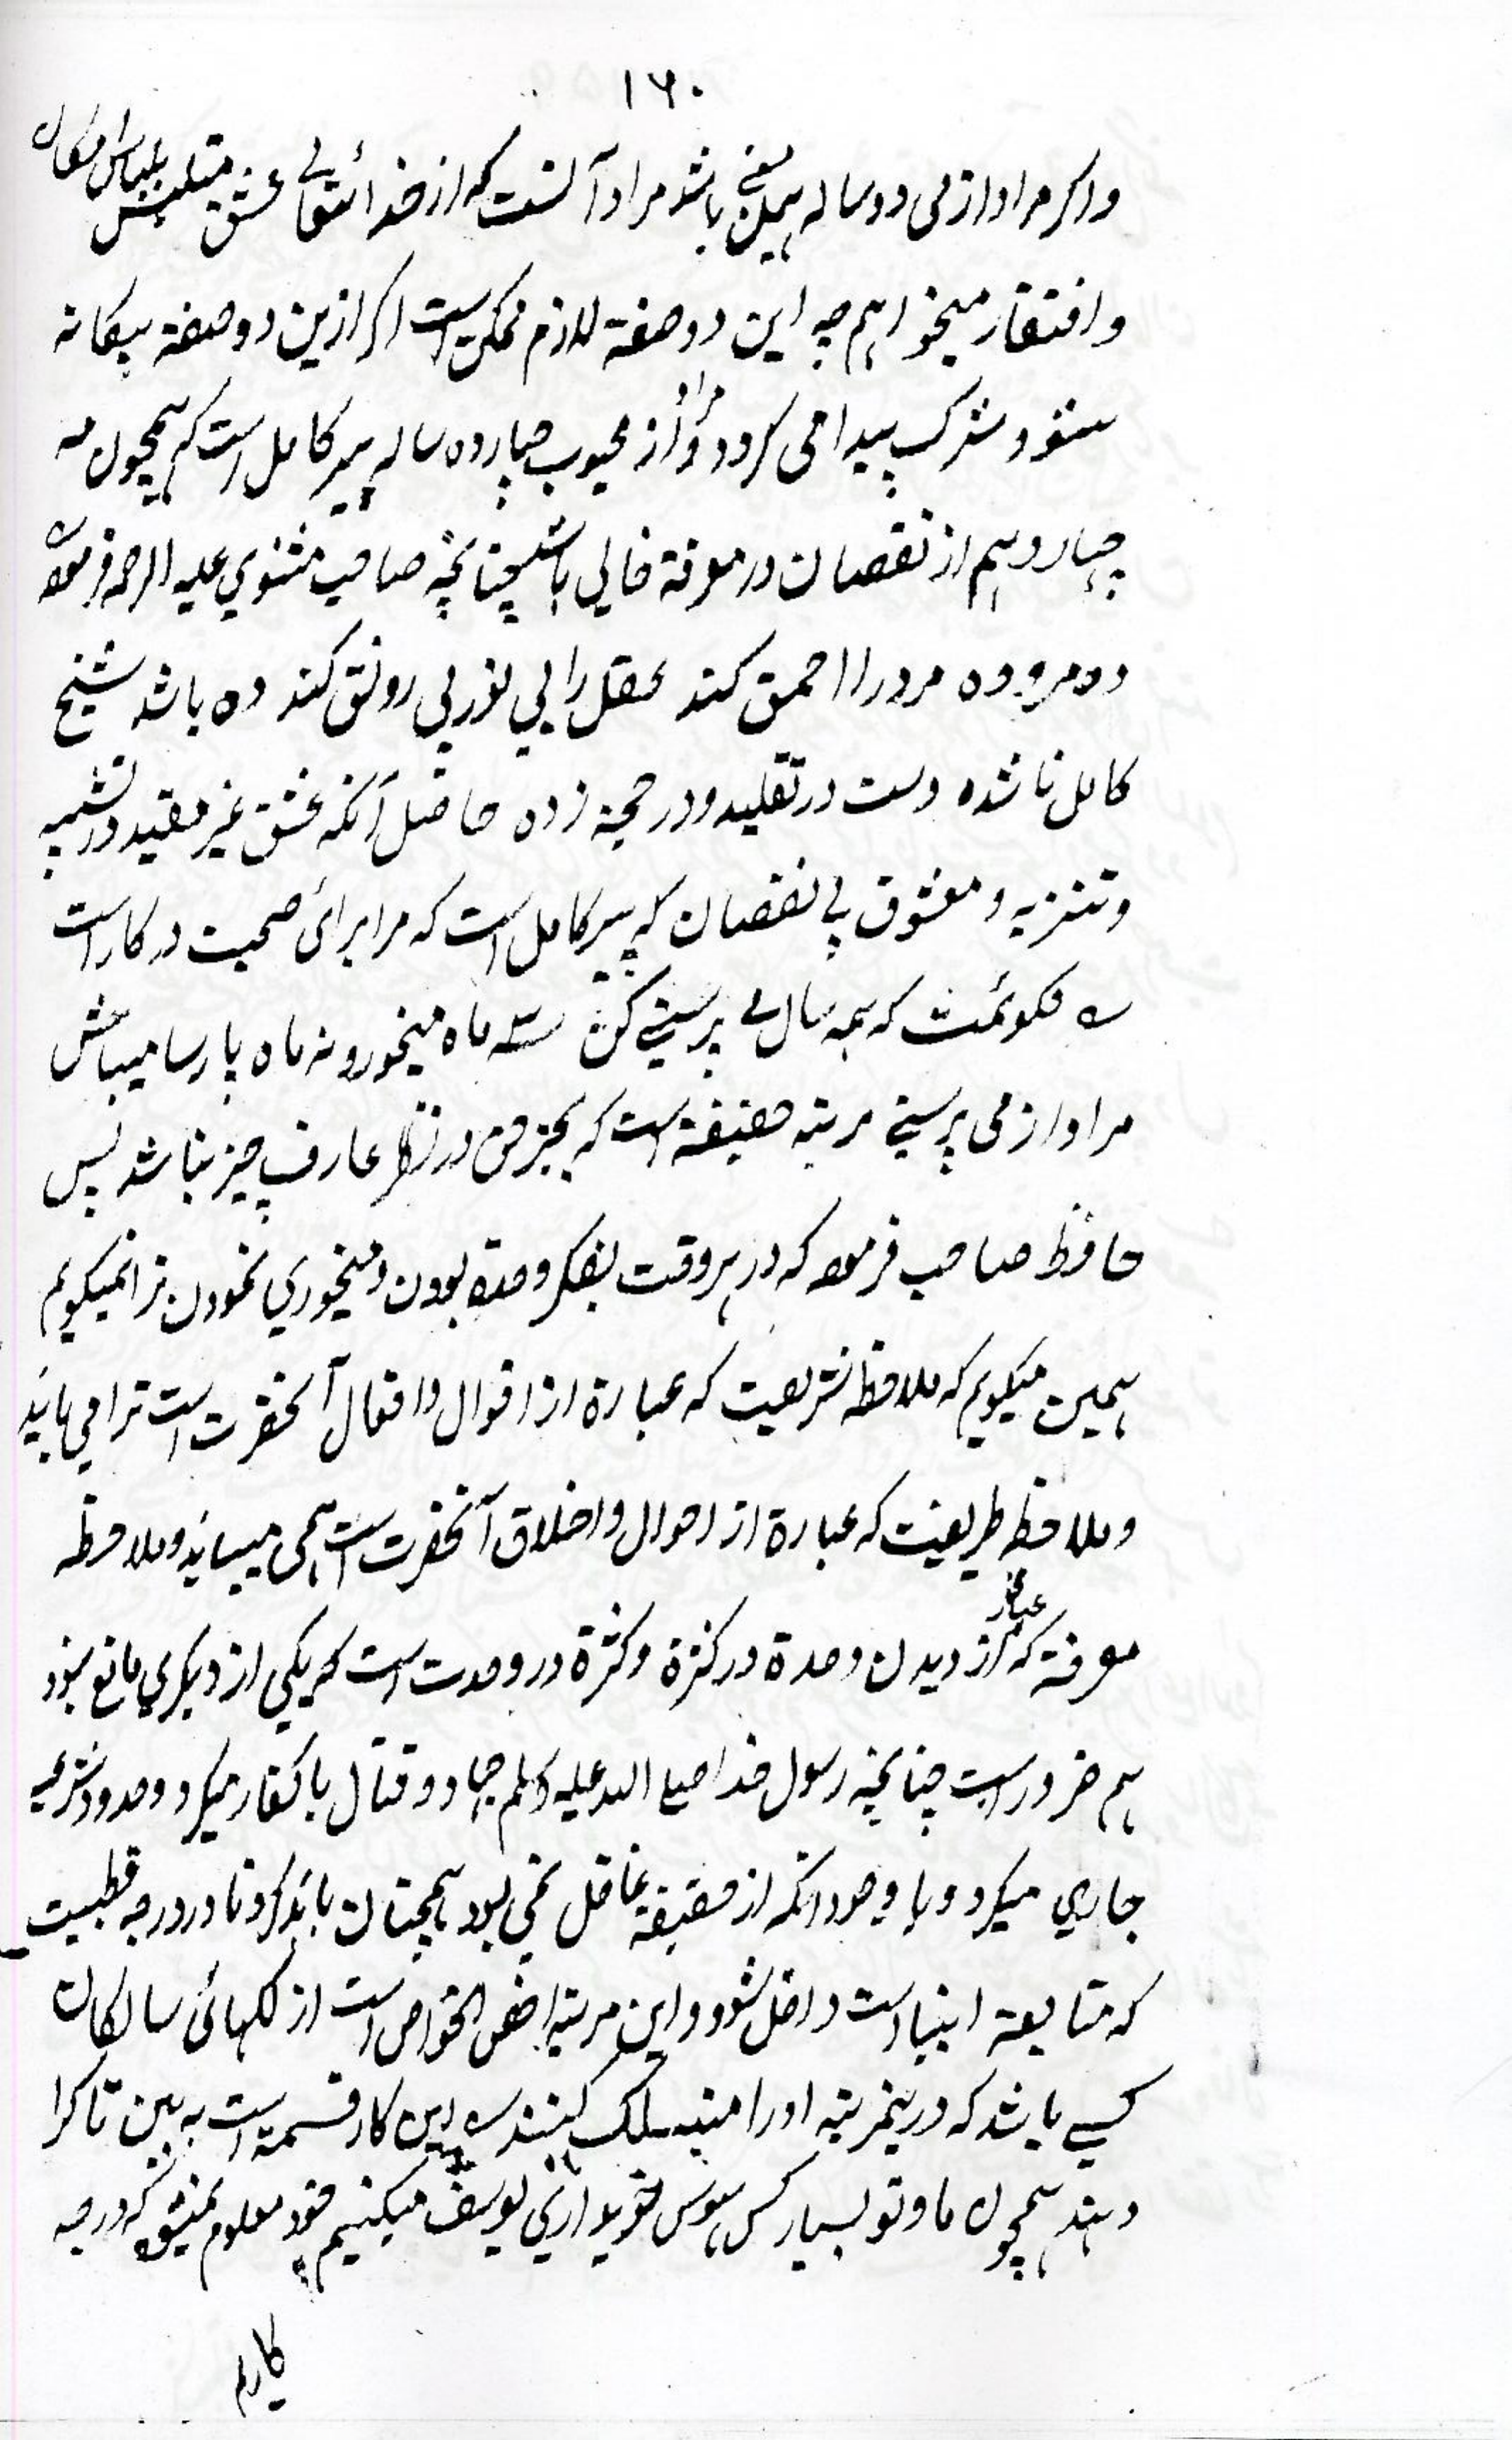 ۱۶۰
واکر مراد از می دو ساله همین معنی باشد مراد آنست که از خدائتعالی عشق متلبس بلباس امکان
وافتقار میخواهم چه این دو صفة لازم ممکن است اکر ازین دو صفة بیکانه
شود شرک پیدا می کردد و مراد از محبوب چهارده ساله پیر کامل است که همچون مه
چهاردهم از نقصان در معرفة خالی باشد چنانچه صاحب مثنوي علیه الرحمه فرموده
ده مرو ده مرد را احمق کند عقل را بی نور بی رونق کند ده باشد شیخ
کامل ناشده دست در تقلید و در حجة زده حاصل آنکه عشق غیر مقید در تشبیه
وتنزیه و معشوق بی نقصان که پیر کامل است که مرا برائ صحبت در کار است
نکوئمت که همه سال می پرستی کن سه ماه میخور و نه ماه پارسا میباش
مراد از می پرستی مرتبه حقیقة است که بجز حق در نظر عارف چیز نباشد پس
حافظ صاحب فرموده که در هر وقت بفکر وحدة بودن و میخوري نمودن ترا نمیکویم
همین میکویم که ملاحظه شریعت که عبارة از اقوال و افعال آنحضرت است ترا می باید
وملاحظه طریقت که عبارة از احوال و اخلاق آنحضرت است همی میباید و ملاحظه
معرفة که عبارة از دیدن وحدة در کثرة و کثرة در وحدت است که یکی از دیکري مانع نبود
هم ضرور است چنانچه رسول خدا صلی الله علیه وسلم جهاد و قتال با کفار میکرد و حدود شرعیه
جاري میکرد و با وجود انکه از حقیقة غافل نمی بود همچنان باید کرد تا در درجه قطبیت
که متابعة انبیا است داخل شود و این مرتبه اخص الخواص است از لکهائی سالکان
کسے باشد که درینمرتبه اورا منسلک کنند این کار قسمة است به بین تا کرا
دهند همچون ما و تو بسیار کس هوس خریداري یوسف میکنیم خود معلوم نمیشود که در چه
کاریم